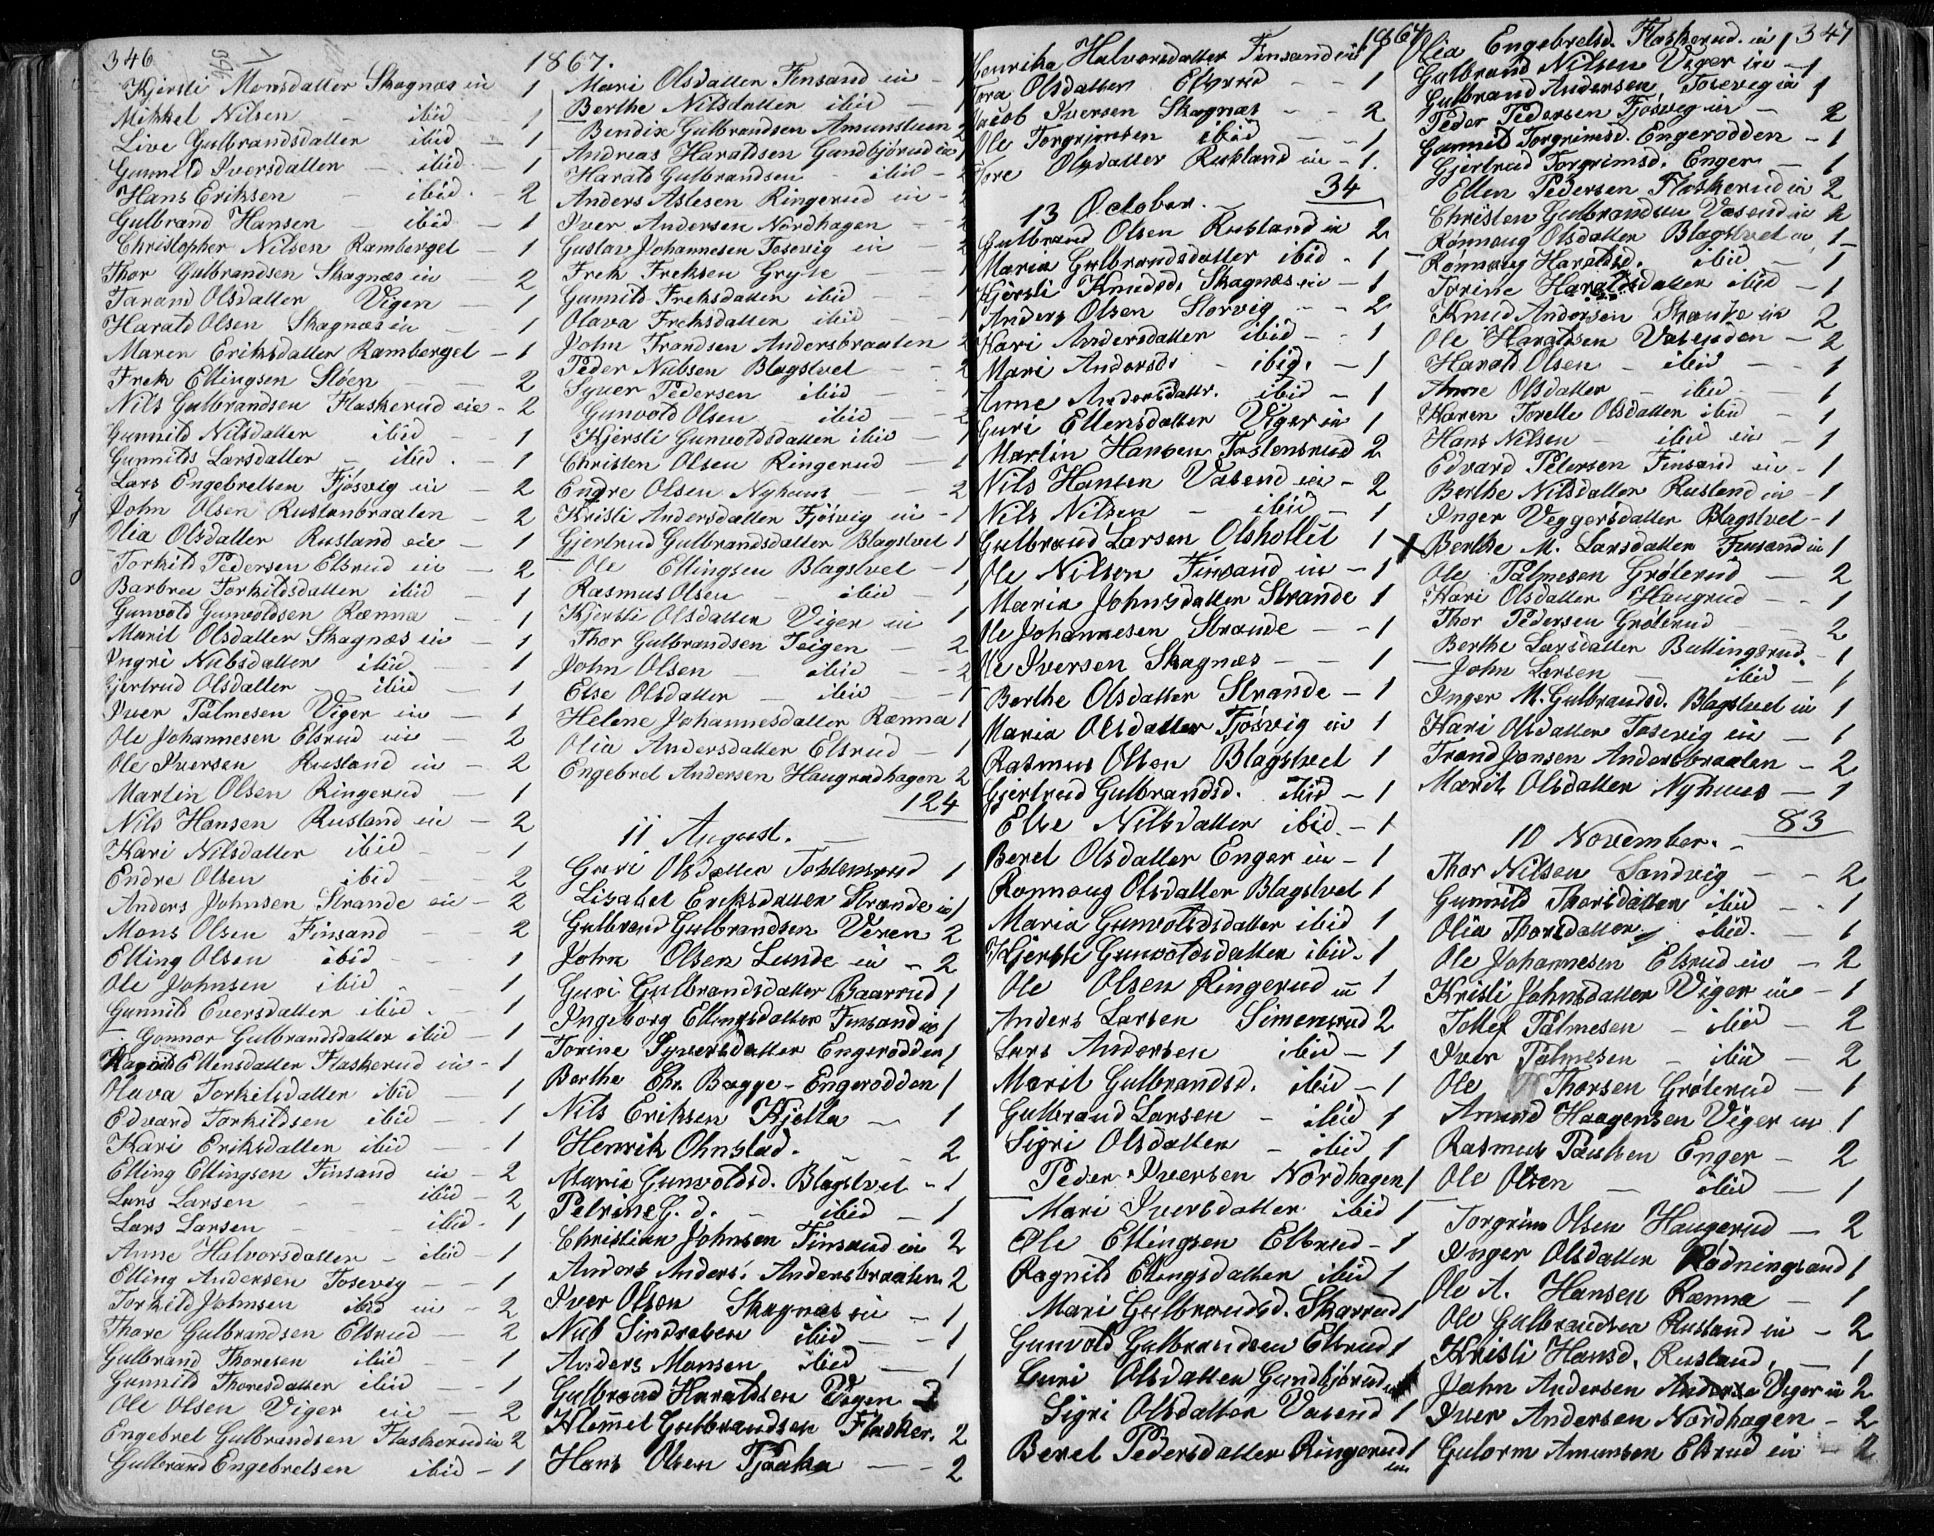 346
1867.
Kjersti Monsdatter Skagnæs in 1
Mikkel Nilsen - ibid 1
Live Gulbrandsdatter ibid - 1
Gunnild Iversdatter - ibid - 1
Hans Eriksen - ibid. - 2
Gulbrand Hansen - ibid - 1
Christopher Nilsen Ramberget - 1
Thor Gulbrandsen Skagnæs in - 2
Tarand Olsdatter Vigen - 1
Harald Olsen Skagnæs in - 1
Maren Eriksdatter Ramberget - 1
Frek Ellingsen Sløen - 2
Nils Gulbrandsen Flaskerud eie - 2
Gunnild Nilsdatter ibid - 1
Gunnild Larsdatter - ibid. - 1
Lars Engebretsen Fjøsvig ein - 2
John Olsen Ruslanbraaten - 2
Olia Olsdatter Rusland eie - 1
Torkild Pedersen Elsrud ein - 2
Barbree Torkildsdatter ibid - 1
Gunvold Gunvoldsen Rænna - 1
Marit Olsdatter Skagnæs ein - 1
Ingri Nubsdatter ibid - 1
Gjertrud Olsdatter - ibid - 1
Iver Palmesen Viger ein - 1
Ole Johannesen Elsrud ein - 2
Ole Iversen Rusland in - 2
Martin Olsen Ringerud - 1
Nils Hansen Rusland ein - 2
Kari Nilsdatter ibid - 1
Endre Olsen ibid - 2
Anders Johnsen Strande eie - 2
Mons Olsen Finsand - 2
Elling Olsen ibid - 1
Ole Johnsen ibid - 1
Gunnild Eversdatter ibid. - 1
Gonnor Gulbrandsdatter ibid - 1
Ragnild Ellensdatter Flaskerud ein - 1
Olava Torkildsdatter ibid - 1
Edvard Torkildsen ibid - 1
Kari Eriksdatter ibid - 1
Elling Ellingsen Finsand ein - 2
Lars Larsen - ibid - 2
Lars Larsen - ibid. 1
Anne Halvorsdatter - ibid - 1
Elling Andersen Tosevig - 1
Torkild Johnsen ibid ein - 2
Thore Gulbrandsen Elsrud - 2
Gulbrand Thoresen ibid - 1
Gunnild Thoresdatter ibid - 1
Ole Olsen Viger ein - 2
Engebret Gulbrandsen Flaskerud in 2
Gulbrand Engebretsen ibid - 1
Mari Olsdatter Finsand ein - 1
Berthe Nilsdatter ibid - 1
Bendix Gulbrandsen Amunslien 2
Andreas Haraldsen Gundbjørud in 1
Harald Gulbrandsen - ibid - 2
Anders Aslesen Ringerud ein - 2
Iver Andersen Nordhagen - 2
Gustav Johannesen Tosevig ein - 2
Frek Freksen Gryte - 1
Gunnild Freksdatter ibid - 1
Olava Freksdatter ibid - 1
John Frandsen Andersbraaten 2
Peder Nubsen Blagstvet - 2
Syver Pedersen ibid - 1
Gunvold Olsen - ibid - 2
Kjersti Gunvoldsdatter ibid - 1
Christen Olsen Ringerud - 1
Endre Olsen Nyhuus - 2
Kristi Andersdatter Fjøsvig ein - 1
Gjertrud Gulbrandsdatter Blagstvet 1
Ole Ellingsen Blagstvet - 1
Rasmus Olsen - ibid 1
Kjersti Olsdatter Viger ein 1
Thor Gulbrandsen Teigen - 2
John Olsen - ibid - 2
Else Olsdatter - ibid - 1
Helene Johannesdatter Rænna 1
Olia Andersdatter Elsrud - 1
Engebret Andersen Haugrudhagen 2
124
11 August.
Guri Olsdatter Toslensrud 1
Lisabet Eriksdatter Strande in 1
Gulbrand Gulbrandsen Veren 2
John Olsen Lunde ein - 2
Guri Gulbrandsdatter Baarrud 1
Ingeborg Ellingsdatter Finsand in 1
Torine Syversdatter Engerodden 1
Berthe Chr. Bagge - Engerodden 1
Nils Eriksen Kjølla - 1
Henrik Ohnstad. - 2
Maria Gunvoldsd. Blagstvet - 1
Petrine G. d. - ibid - 1
Christian Johnsen Finsand ein 2
Anders Anders. Andersbraaten 2
Iver Olsen Skagnæs in - 1
Nub Sindresen ibid - 1
Anders Monsen ibid - 1
Gulbrand Haraldsen Vigen 2
Hemet Gulbrandsen Flasker. 2
Hans Olsen Tjøaka - 2
1867
347
Henrika Halvorsdatter Finsand in 1
Tora Olsdatter Elsrud - 1
Jacob Iversen Skagnæs - 2
Ole Torgrimsen ibid - 1
Tore Olsdatter Rusland in - 1.
34
13 October.
Gulbrand Olsen Rusland in 2
Maria Gulbrandsdatter ibid - 1
Kjersti Knudsd. Skagnæs in - 1
Anders Olsen Storvig - 2
Kari Andersdatter ibid - 1
Mari Andersd. - ibid. - 1
Anne Andersdatr. ibid - 1
Guri Ellensdatter Viger in 1
Martin Hansen Toslensrud 2
Nils Hansen Vasend in - 2
Nils Nilsen - ibid - 1
Gulbrand Larsen Olshollet 1
Ole Nilsen Finsand in - 1
Maria Johnsdatter Strande 1
Ole Johannesen Strande - 1
Ole Iversen Skagnæs - 1
Berthe Olsdatter Strande - 1
Maria Olsdatter Fjøsvig in 1
Rasmus Olsen Blagstvet 1
Gjertrud Gulbrandsd. ibid - 1
Else Nilsdatter ibid. - 1
Beret Olsdatter Enger in - 1
Rønnaug Olsdatter Blagstvet 1
Maria Gunvoldsdatter ibid 1
Kjersti Gunvoldsdatter ibid. 1
Ole Olsen Ringerud in 1
Anders Larsen Simensrud 2
Lars Andersen ibid - 1
Marit Gulbrandsd. ibid - 1
Gulbrand Larsen - ibid 1
Sigri Olsdatter - ibid 1
Peder Iversen Nordhagen 1
Mari Iversdatter ibid 1
Ole Ellingsen Elsrud - 1
Ragnild Ellingsdatter ibid 1
Mari Gulbrandsd. Skarrud 1
Gunvold Gulbrandsen Elsrud 1
Guri Olsdatter Gundbjørud in
Sigri Olsdatter Vasend 1
Beret Pedersdatter Ringerud 1
in
Olia Engebretsd. Flaskerud. in 1
Gulbrand Nilsen Viger in - 1
Gulbrand Andersen Tosevig in 1
Peder Pedersen Fjøsvig in - 2
Gunnild Torgrimsd. Engerodden - 1
Gjertrud Torgrimsd. Enger - 1
Ellen Pedersen Flaskerud in 2
Christen Gulbrandsen Vasend in 2
Rønnaug Olsdatter Blagstvet in 1
Rønnaug Haraldsd. ibid - 1
Torine Haraldsdatter ibid - 1
Knud Andersen Strande in 2
Ole Haraldsen Vasenden - 2
Harald Olsen - ibid - 1
Anne Olsdatter - ibid - 1
Karen Torelle Olsdatter ibid - 1
Hans Nilsen - ibid in - 1
Edvard Petersen Finsand in - 1
Berthe Nilsdatter Rusland in - 1
Inger Veggersdatter Blagstvet - 1
X Berthe M. Larsdatter Finsand in 1
Ole Palmesen Grøterud - 2
Kari Olsdatter Haugrud - 1
Thor Pedersen Grøterud 2
Berthe Larsdatter Bullingsrud - 1
John Larsen - ibid - 1
Inger M. Gulbrandsd. Blagstvet in 1
Kari Olsdatter Tosevig in - 1
Trond Jonsen Andersbraaten - 2
Marit Olsdatter Nyhuus - 1
83
10 November.
Thor Nilsen Sandvig - 2
Gunnild Thorsdatter ibid - 1
Olia Thorsdatter ibid. 1
Ole Johannesen Elsrud ein - 2
Kristi Johnsdatter Viger in - 1
Tollef Palmesen - ibid - 2
Iver Palmesen - ibid - 2
Ole Thorsen Grøterud - 1
Amund Haagensen Viger in 1
Rasmus Paulsen Enger - 2
Ole Olsen - ibid - 1
Torgrim Olsen Haugerud - 2
Inger Olsdatter Rødningsand 1
Ole A. Hansen Rænna - 1
Ole Gulbrandsen Rusland in - 2
Kristi Hansd. Rusland. - 1
John Andersen Viger in 2
Iver Andersen Nordhagen - 2
Gulorm Amunsen Elsrud in - 2